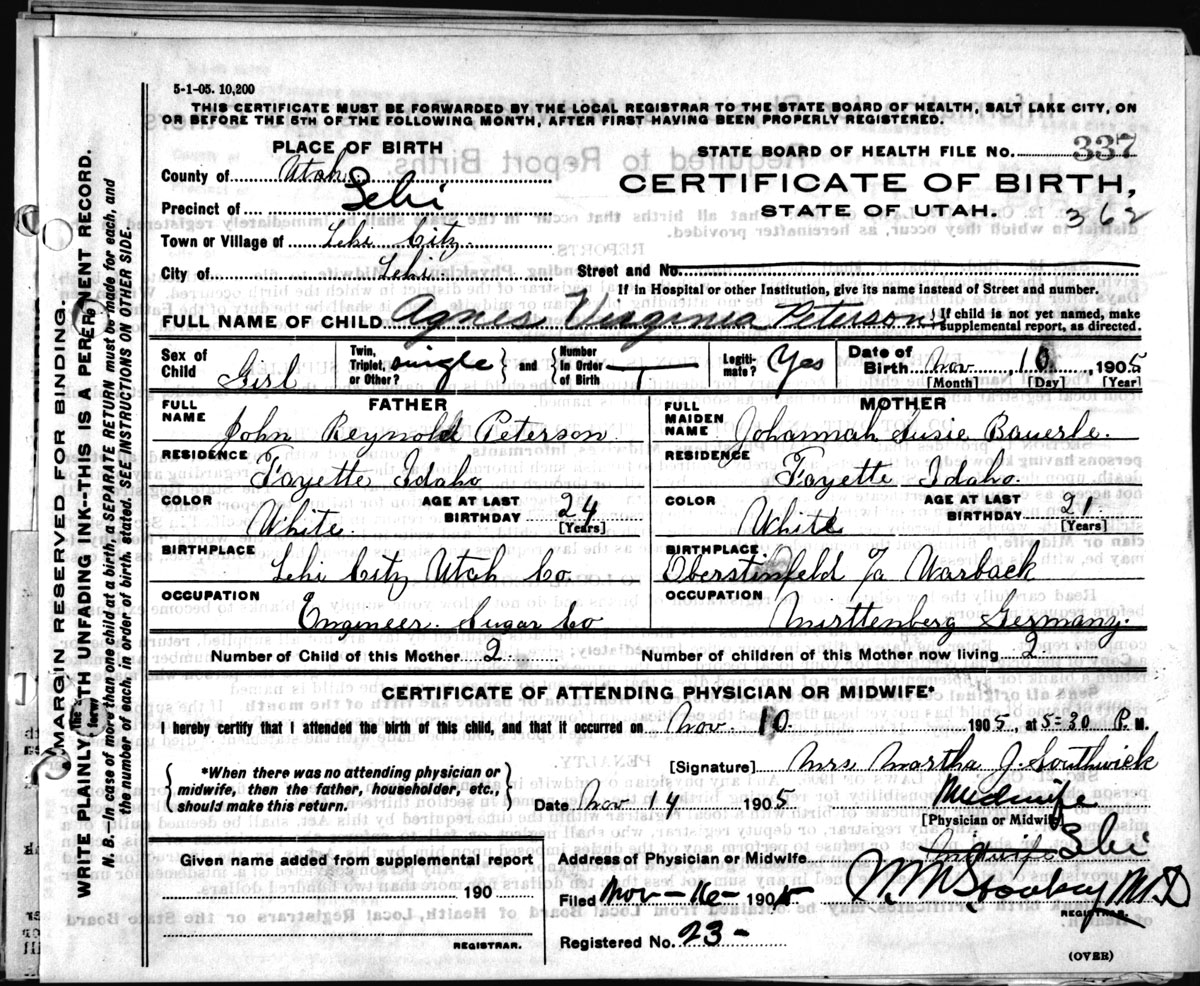 5-1-05. 10,200
THIS CERTIFICATE MUST BE FORWARDED BY THE LOCAL REGISTRAR TO THE STATE BOARD OF HEALTH, SALT LAKE CITY, ON
OR BEFORE THE 5TH OF THE FOLLOWING MONTH, AFTER FIRST HAVING BEEN PROPERLY REGISTERED.
PLACE OF BIRTH
STATE BOARD OF HEALTH FILE No. 337
County of Utah
CERTIFICATE OF BIRTH,
Precinct of Lehi
STATE OF UTAH. 362
Town or Village of Lehi City
City of Lehi
Street and No.
If in Hospital or other Institution, give its name instead of Street and number.
FULL NAME OF CHILD Agnes Virginia Peterson
If child is not yet named, make supplemental report, as directed.
Sex of Child Girl
Twin, Triplet, or Other? single and Number in Order of Birth
Legitimate? Yes
Date of Birth Nov 10, 1905
[Month] [Day] [Year]
FATHER
MOTHER
FULL NAME John Reynold Peterson
FULL MAIDEN NAME Johannah Susie Bauerle
RESIDENCE Fayette Idaho
RESIDENCE Fayette Idaho
COLOR White
AGE AT LAST BIRTHDAY 24 [Years]
COLOR White
AGE AT LAST BIRTHDAY 21 [Years]
BIRTHPLACE Lehi City Utah Co
BIRTHPLACE Oberstinfeld Warback
OCCUPATION Engineer. Sugar Co
OCCUPATION Mirttenberg Germany.
Number of Child of this Mother 2
Number of children of this Mother now living 2
CERTIFICATE OF ATTENDING PHYSICIAN OR MIDWIFE*
I hereby certify that I attended the birth of this child, and that it occurred on Nov. 10. 1905, at 5=30 P. M.
*When there was no attending physician or midwife, then the father, householder, etc., should make this return.
[Signature] Mrs Martha J. Southwick
Date Nov 14 1905
Midwife
[Physician or Midwife]
Given name added from supplemental report
190
REGISTRAR.
Address of Physician or Midwife Lehi
Filed Nov - 16 - 1905
M D
REGISTRAR.
Registered No. 23 -
(OVER)
MARGIN RESERVED FOR BINDING.
WRITE PLAINLY WITH UNFADING INK--THIS IS A PERMANENT RECORD.
N. B.--In case of more than one child at a birth, a SEPARATE RETURN must be made for each, and
the number of each, in order of birth, stated. SEE INSTRUCTIONS ON OTHER SIDE.